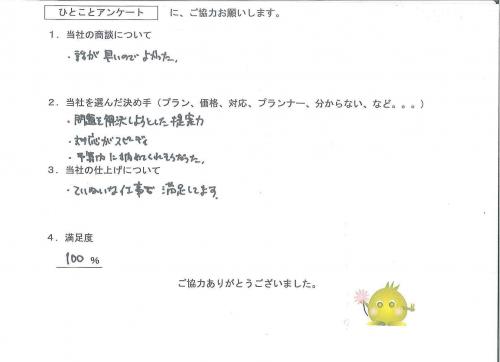 ひとことアンケート に、ご協力お願いします。
1．当社の商談について
・話が早いのでよかった。
2．当社を選んだ決め手（プラン、価格、対応、プランナー、分からない、など。。。）
・問題を解決しようとした提案力
・対応がスピーディ
・予算内に納めてくれそうだった。
3．当社の仕上げについて
・ていねいな仕事で満足してます。
4．満足度
100 %
ご協力ありがとうございました。